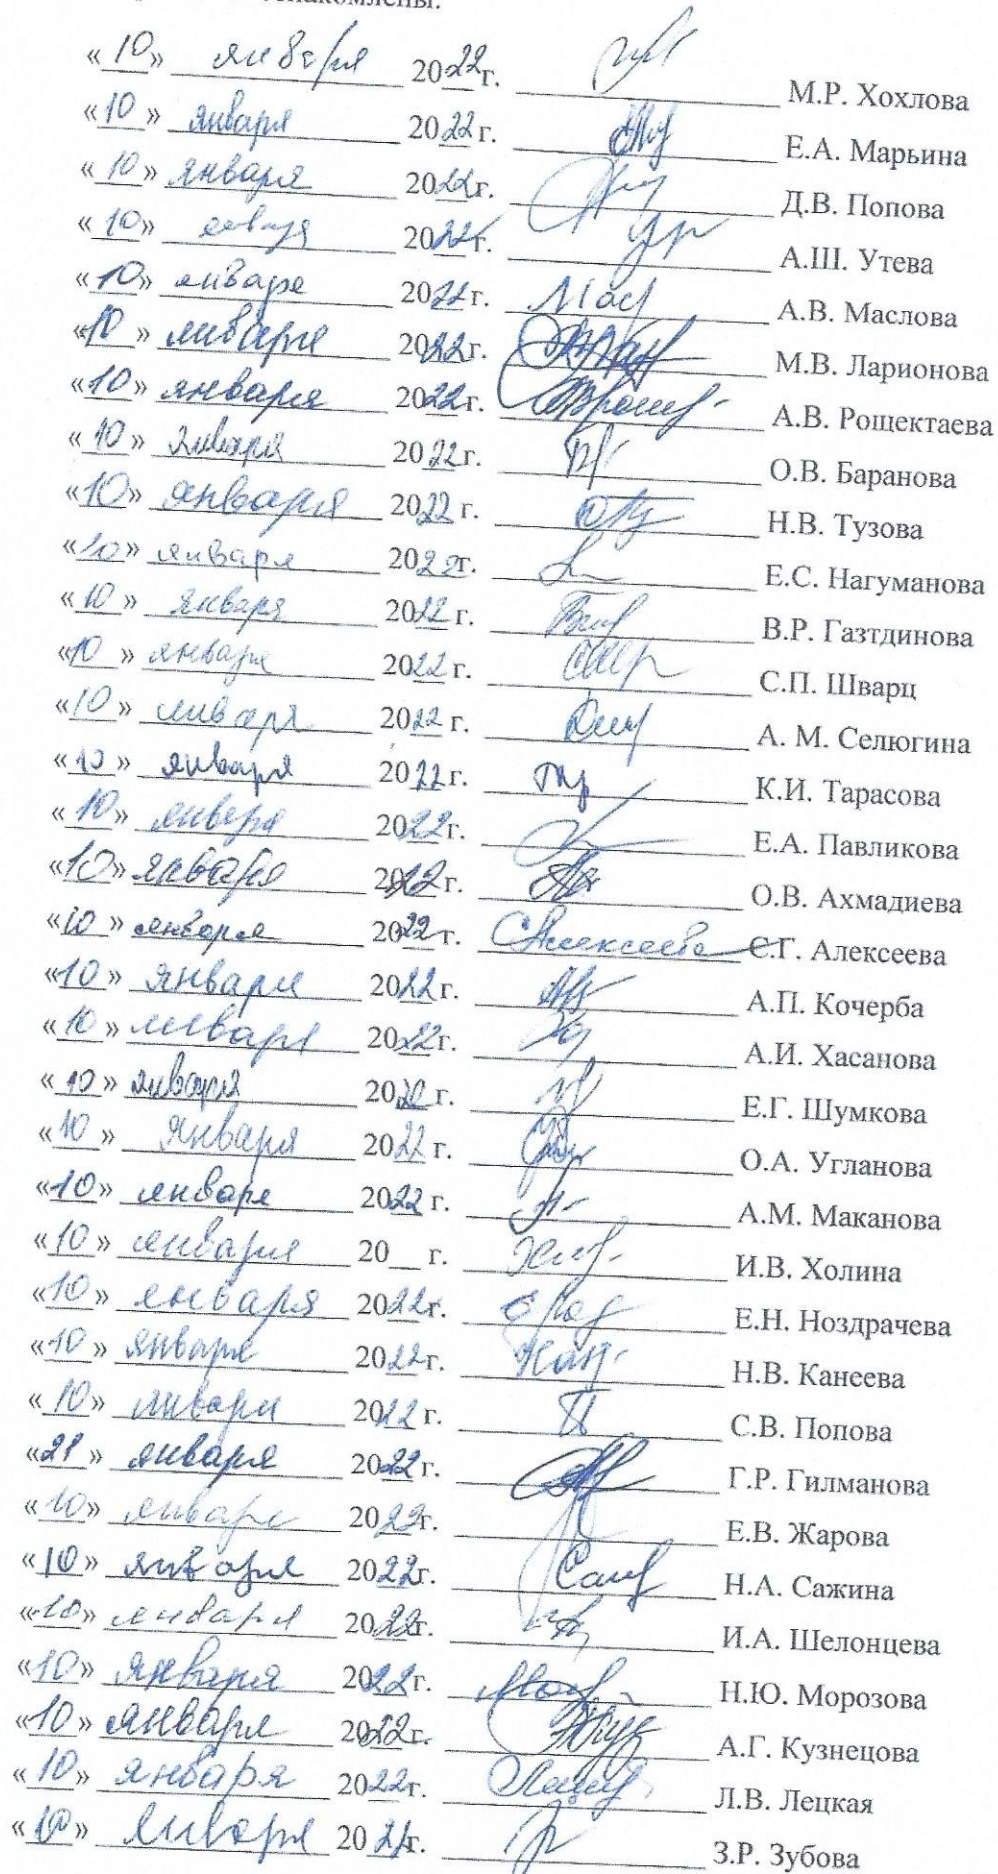 знакомлены:
«10» января 2022г. М.Р. Хохлова
«10» января 2022 г. Е.А. Марьина
«10» января 2022г. Д.В. Попова
«10» января 2022г. А.Ш. Утева
«10» января 2022г. Мас А.В. Маслова
«10» января 2022г. М.В. Ларионова
«10» января 2022г. А.В. Рощектаева
«10» января 2022г. О.В. Баранова
«10» января 2022 г. Н.В. Тузова
«10» января 2022г. Е.С. Нагуманова
«10» января 2022 г. В.Р. Газтдинова
«10» января 2022 г. С.П. Шварц
«10» января 2022 г. А. М. Селюгина
«10» января 2022г. К.И. Тарасова
«10» января 2022г. Е.А. Павликова
«10» января 2022г. О.В. Ахмадиева
«10» января 2022 г. САлексеева С.Г. Алексеева
«10» января 2022г. А.П. Кочерба
«10» января 2022г. А.И. Хасанова
«10» января 20 г. Е.Г. Шумкова
«10» января 2022 г. О.А. Угланова
«10» января 2022 г. А.М. Маканова
«10» января 20__ г. И.В. Холина
«10» января 2022г. Е.Н. Ноздрачева
«10» января 2022г. Н.В. Канеева
«10» января 2022 г. С.В. Попова
«21» января 2022 г. Г.Р. Гилманова
«10» января 2022г. Е.В. Жарова
«10» января 2022г. Саж Н.А. Сажина
«10» января 2022г. И.А. Шелонцева
«10» января 2022г. Н.Ю. Морозова
«10» января 2022г. А.Г. Кузнецова
«10» января 2022г. Л.В. Лецкая
«10» января 20 г. З.Р. Зубова